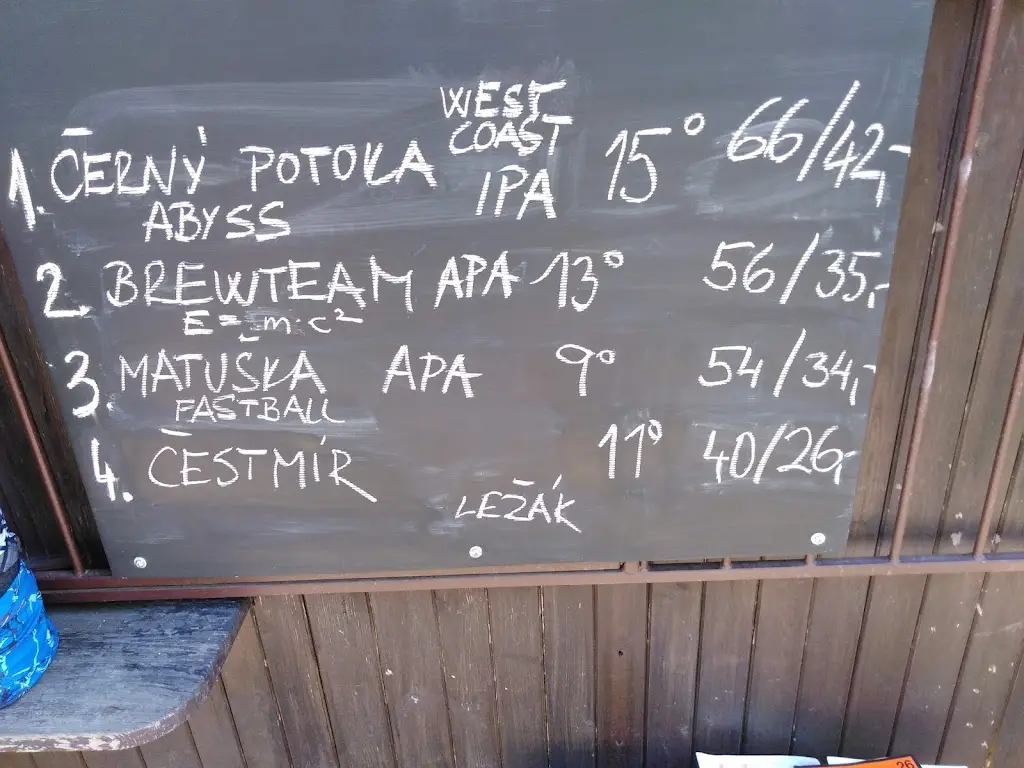 1. ČERNÝ POTOKA WEST COAST IPA 15° 66/42,-
ABYSS
2. BREWTEAM APA 13° 56/35,-
E=m·c²
3. MATUŠKA APA 9° 54/34,-
FASTBALL
4. ČESTMÍR 11° 40/26,-
LEŽÁK
26